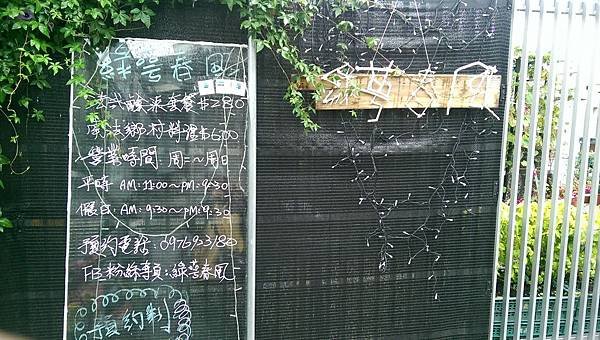 綠鶯春風
法式酸菜套餐$280
南法鄉村料理$600
營業時間 周二~周日
平時 AM:11:00~PM:9:30
假日:AM:9:30~PM:9:30
預約電話:0976923180
FB粉絲專頁:綠鶯春風
預約制